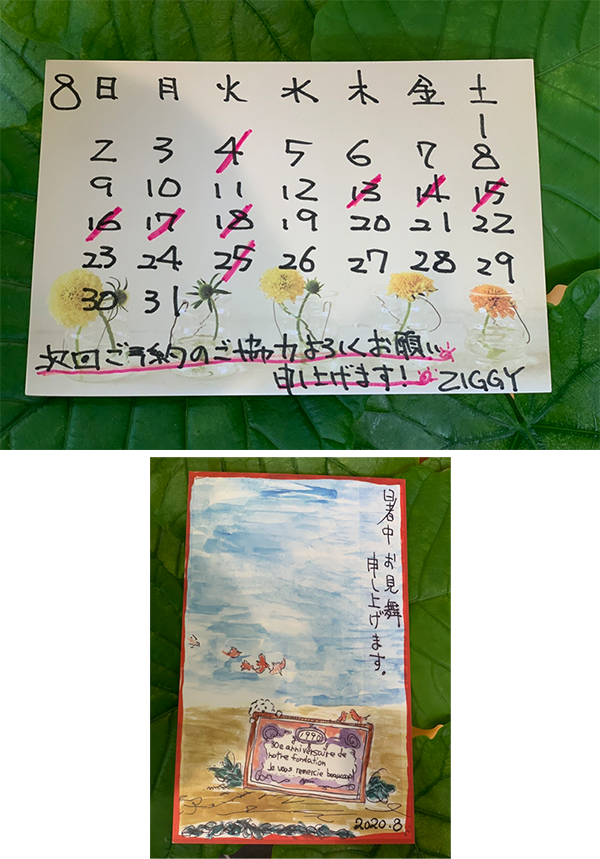 8 日 月 火 水 木 金 土
1
2 3 4 5 6 7 8
9 10 11 12 13 14 15
16 17 18 19 20 21 22
23 24 25 26 27 28 29
30 31
次回ご予約のご協力よろしくお願い
申し上げます!
ZIGGY
暑中お見舞
申し上げます。
1990
30e anniversaire de
notre fondation
Je vous remercie beaucoup
2020.8